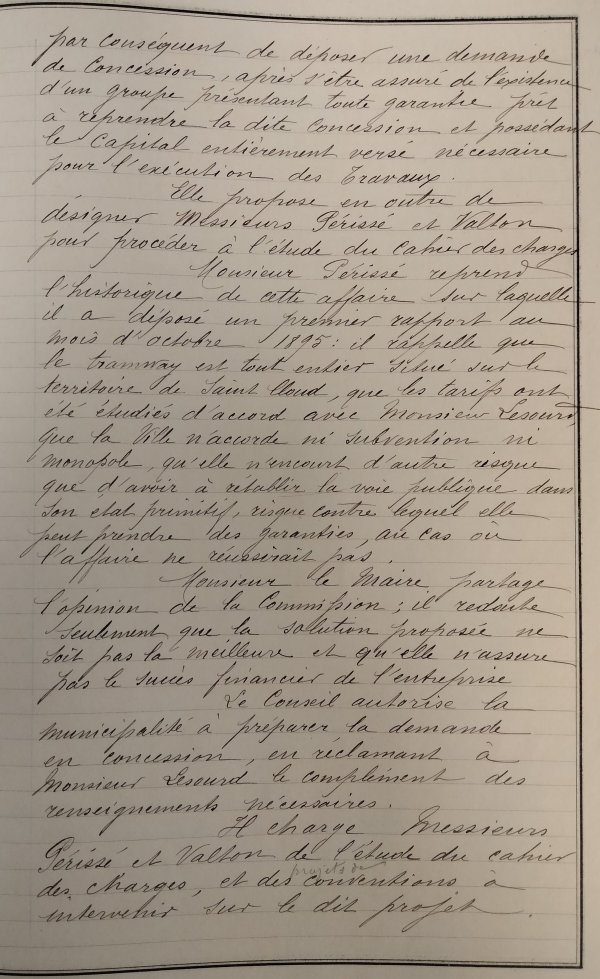 par conséquent de déposer une demande
de Concession, après s'être assuré de l'éxistence
d'un groupe présentant toute garantie prêt
à reprendre la dite concession et possédant
le Capital entièrement versé nécessaire
pour l'exécution des Travaux.
Elle propose en outre de
désigner Messieurs Périssé et Valton
pour procéder à l'étude du Cahier des charges
Monsieur Périssé reprend
l'historique de cette affaire sur laquelle
il a déposé un premier rapport au
mois d'octobre 1895: il rappelle que
le tramway est tout entier situé sur le
territoire de Saint Cloud, que les tarifs ont
été étudiés d'accord avec Monsieur Lesourd,
que la Ville n'accorde ni subvention ni
monopole, qu'elle n'encourt d'autre risque
que d'avoir à rétablir la voie publique dans
son état primitif, risque contre lequel elle
peut prendre des garanties, au cas où
l'affaire ne réussirait pas.
Monsieur le Maire partage
l'opinion de la Commission; il redoute
seulement que la solution proposée ne
soit pas la meilleure et qu'elle n'assure
pas le succès financier de l'entreprise
Le Conseil autorise la
municipalité à préparer la demande
en concession, en réclamant à
Monsieur Lesourd le complément des
renseignements nécessaires.
Il charge Messieurs
Périssé et Valton de l'étude du cahier
projets de
des charges, et des conventions à
intervenir sur le dit projet.